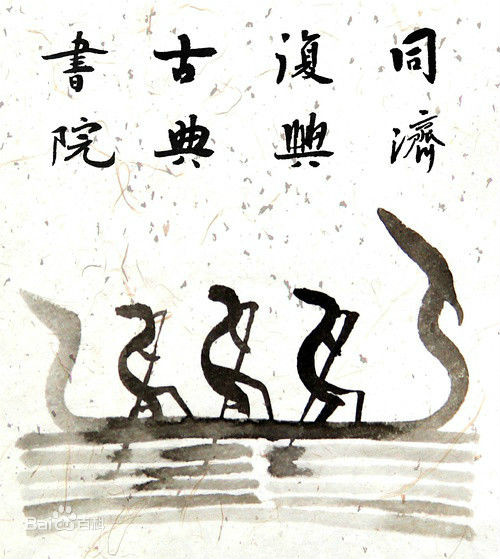 同濟
復興
古典
書院
Baidu百科